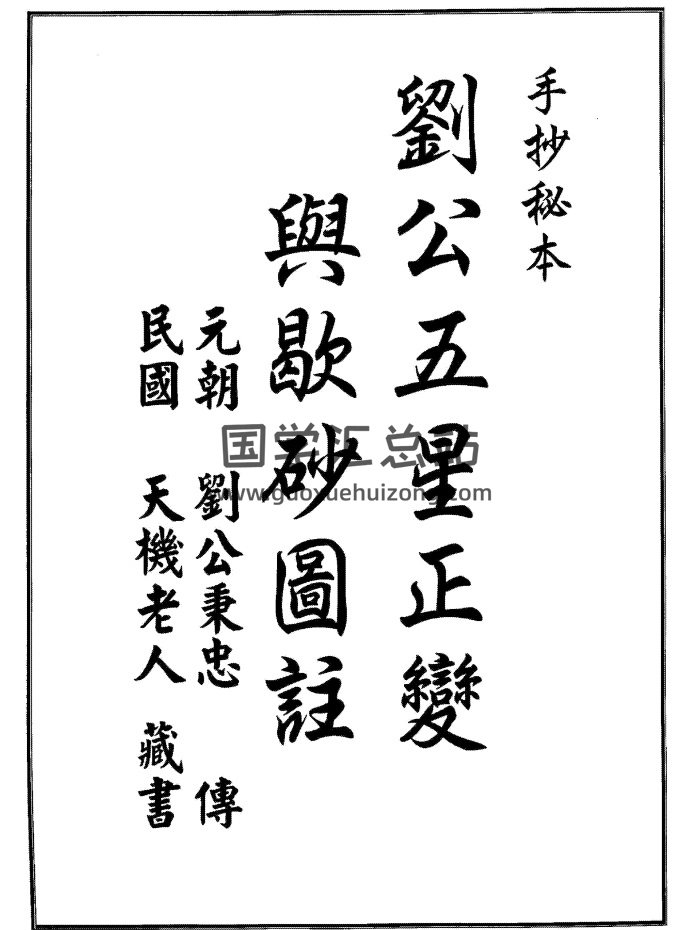 手抄秘本
劉公五星正變
與歇砂圖註
元朝 劉公秉忠 傳
民國 天機老人 藏書
国学汇总站
www.guoxuehuizong.com